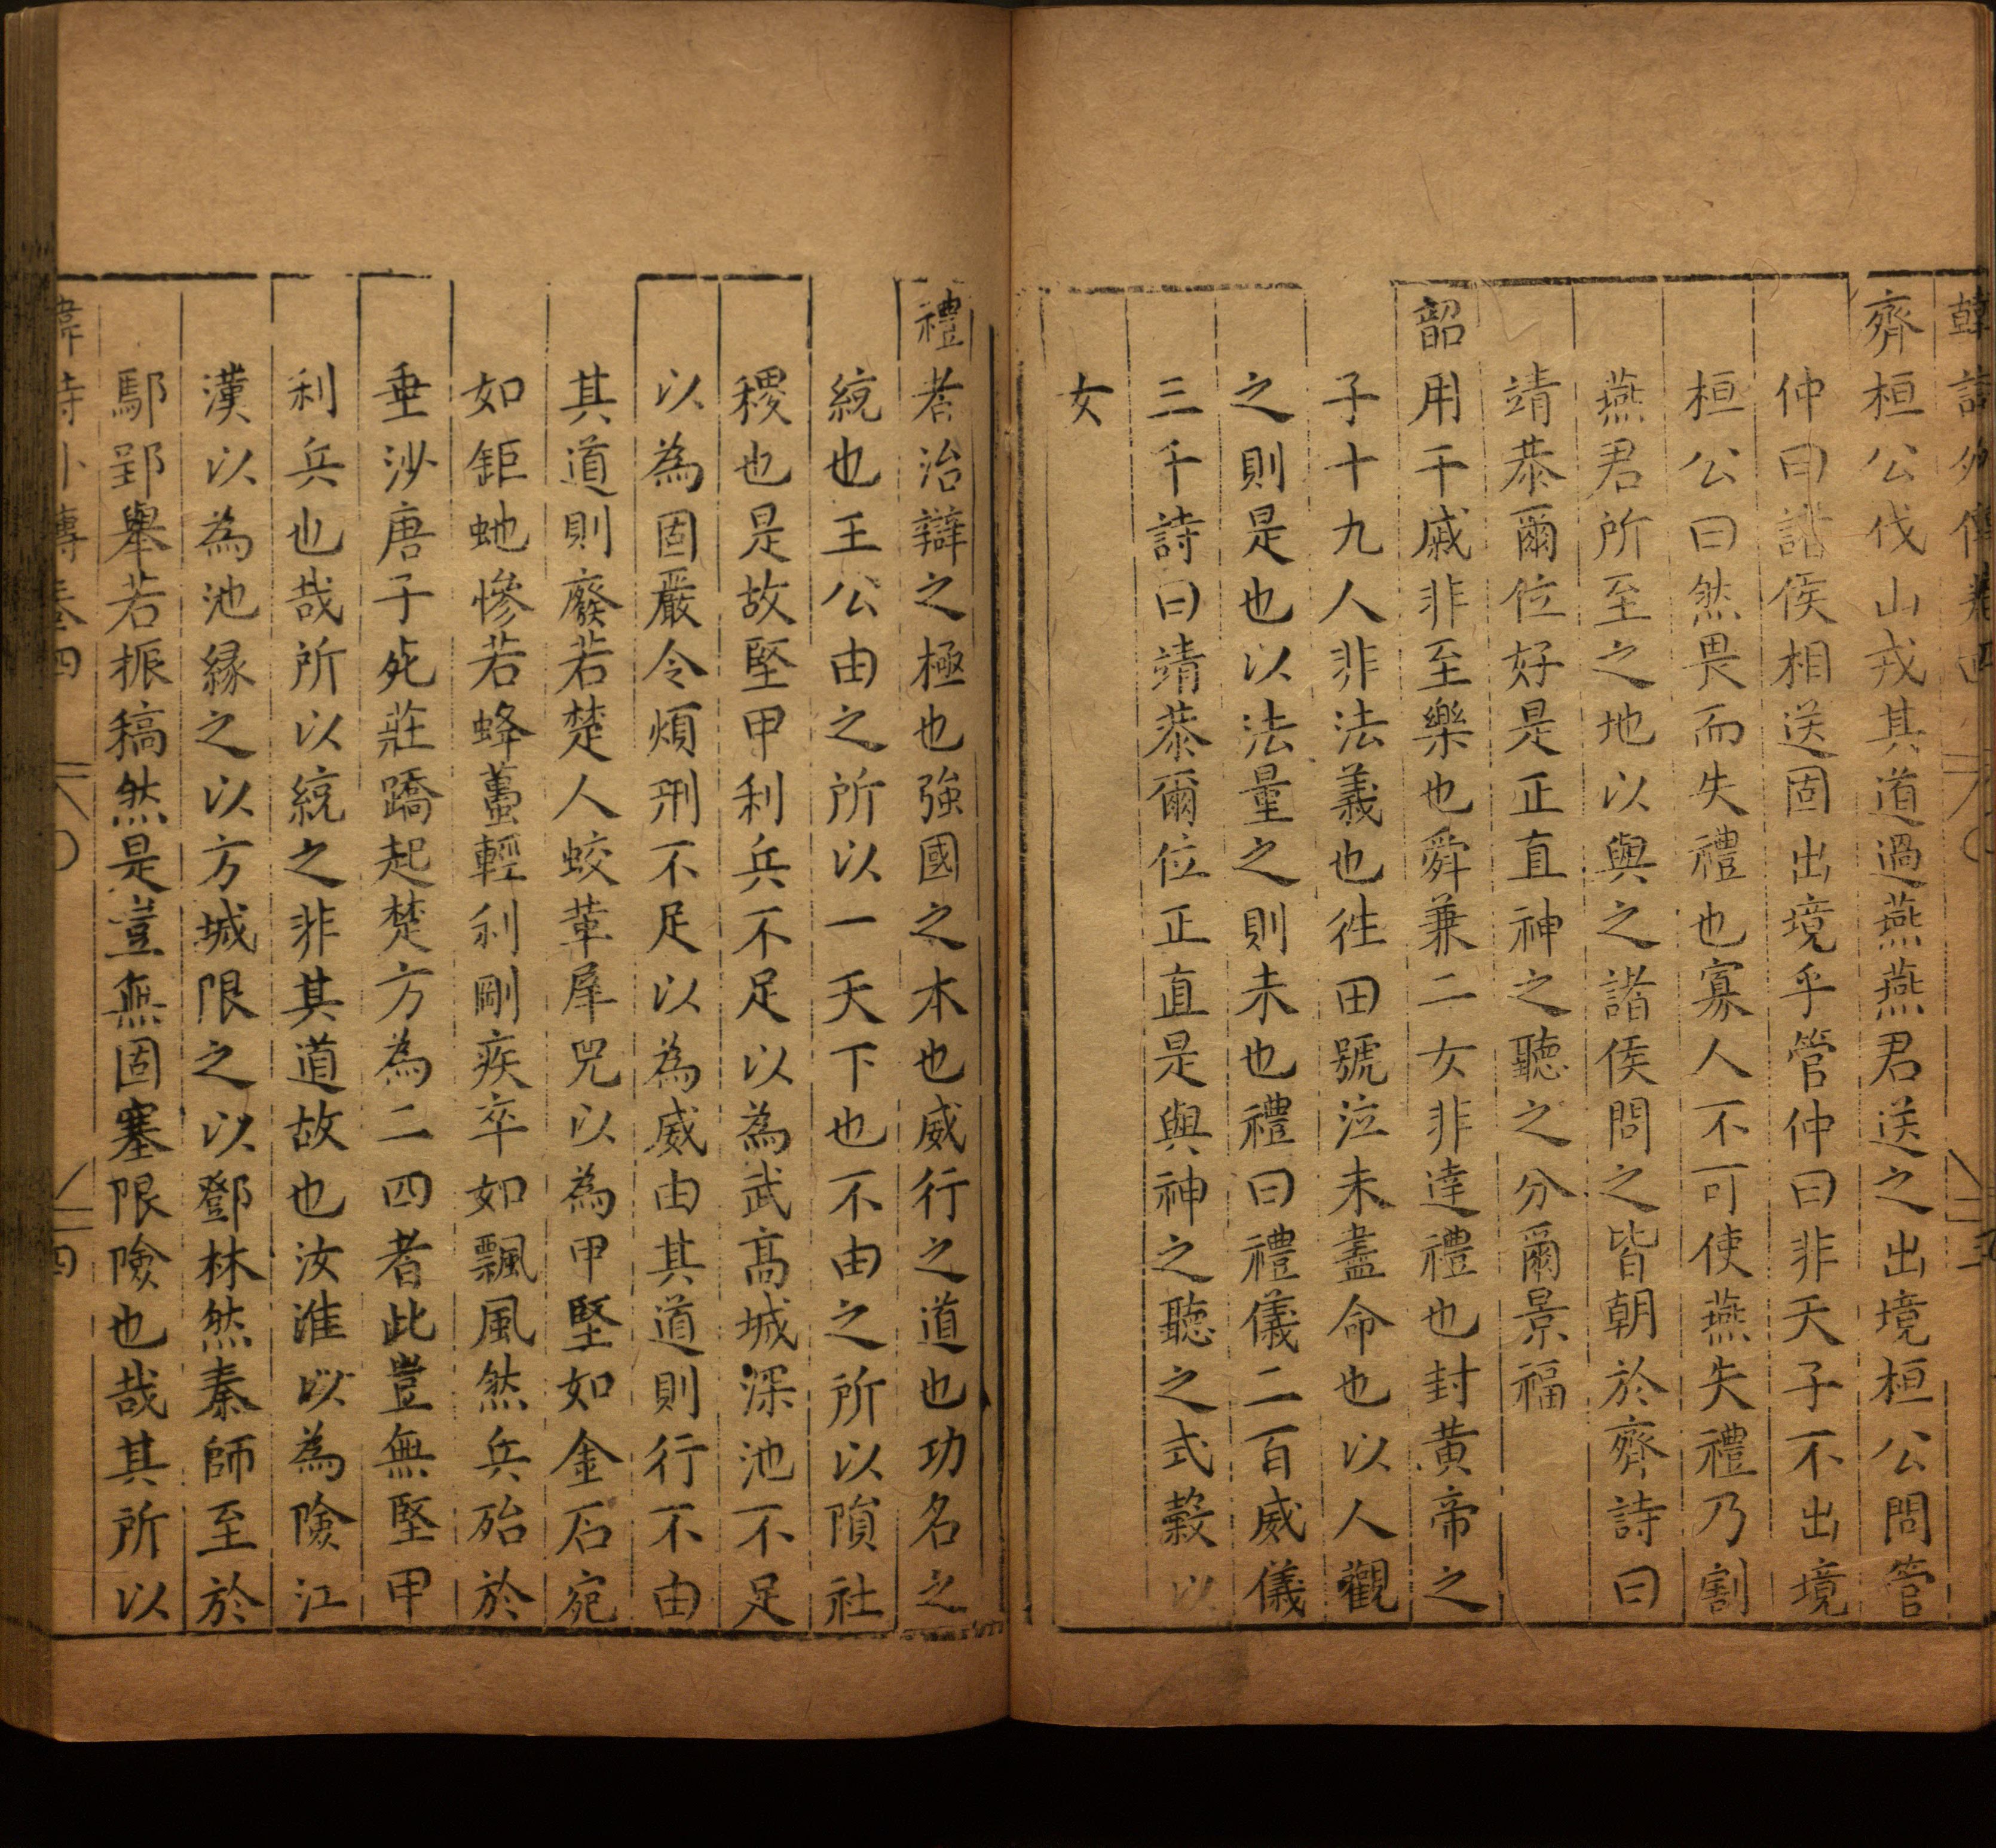 韓詩外傳卷四
齊桓公伐山戎其道過燕燕君送之出境桓公問管
仲曰諸侯相送固出境乎管仲曰非天子不出境
桓公曰然畏而失禮也寡人不可使燕失禮乃割
燕君所至之地以與之諸侯問之皆朝於齊詩曰
靖恭爾位好是正直神之聽之分爾景福
韶用干戚非至樂也舜兼二女非達禮也封黃帝之
子十九人非法義也徃田號泣未盡命也以人觀
之則是也以法量之則未也禮曰禮儀二百威儀
三千詩曰靖恭爾位正直是與神之聽之式穀以
女
禮者治辯之極也強國之本也威行之道也功名之
統也王公由之所以一天下也不由之所以隕社
稷也是故堅甲利兵不足以為武高城深池不足
以為固嚴令煩刑不足以為威由其道則行不由
其道則廢若楚人蛟革犀兕以為甲堅如金石宛
如鉅虵慘若蜂蠆輕利剛疾卒如飄風然兵殆於
垂沙唐子死莊蹻起楚方為二四者此豈無堅甲
利兵也哉所以統之非其道故也汝淮以為險江
漢以為池緣之以方城限之以鄧林然秦師至於
鄢郢舉若振稿然是豈無固塞限險也哉其所以
韓詩外傳卷四 四